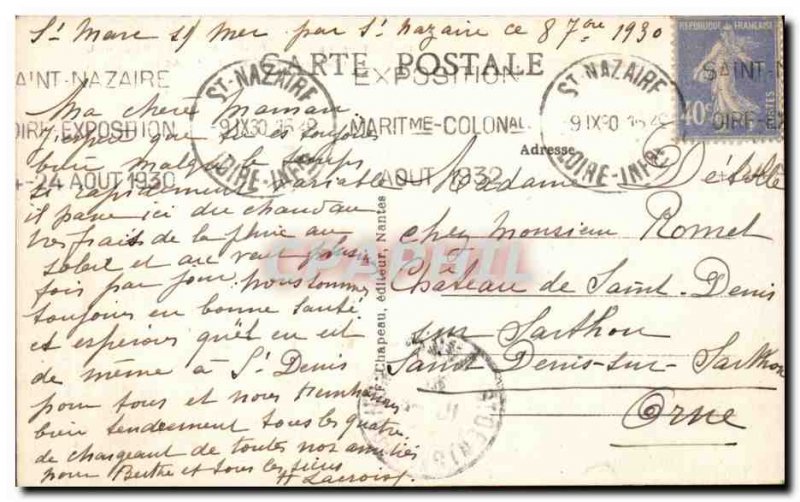 St Marc s/ mer par St Nazaire ce 8 7bre 1930
CARTE POSTALE
AINT-NAZAIRE
OIRE-EXPOSITION
4-24 AOUT 1930
ST-NAZAIRE
9 IX 30
LOIRE-INFRE
EXPOSITION
MARITME-COLONAL
AOUT 1932
ST-NAZAIRE
9 IX 30
LOIRE-INFRE
REPUBLIQUE FRANÇAISE
40c
POSTES
SAINT-N
OIRE-EX
Adresse
Ma chère Maman
J'espère que tu es toujours
bien malgré le temps
si rapidement variable
il passe ici du chaud au
très frais de la pluie au
soleil et au vent plusieurs
fois par jour. Nous sommes
toujours en bonne santé
et espérons qu'il en est
de même à St Denis
pour tous et nous t'embrassons
bien tendrement tous les quatre
te chargeant de toutes nos amitiés
pour Berthe et tous les siens
H Lacroix
Chapeau, éditeur, Nantes
CPARPHIL
Madame Déville
chez Monsieur Romet
Château de Saint-Denis
sur Sarthon
Saint Denis-sur-Sarthon
Orne